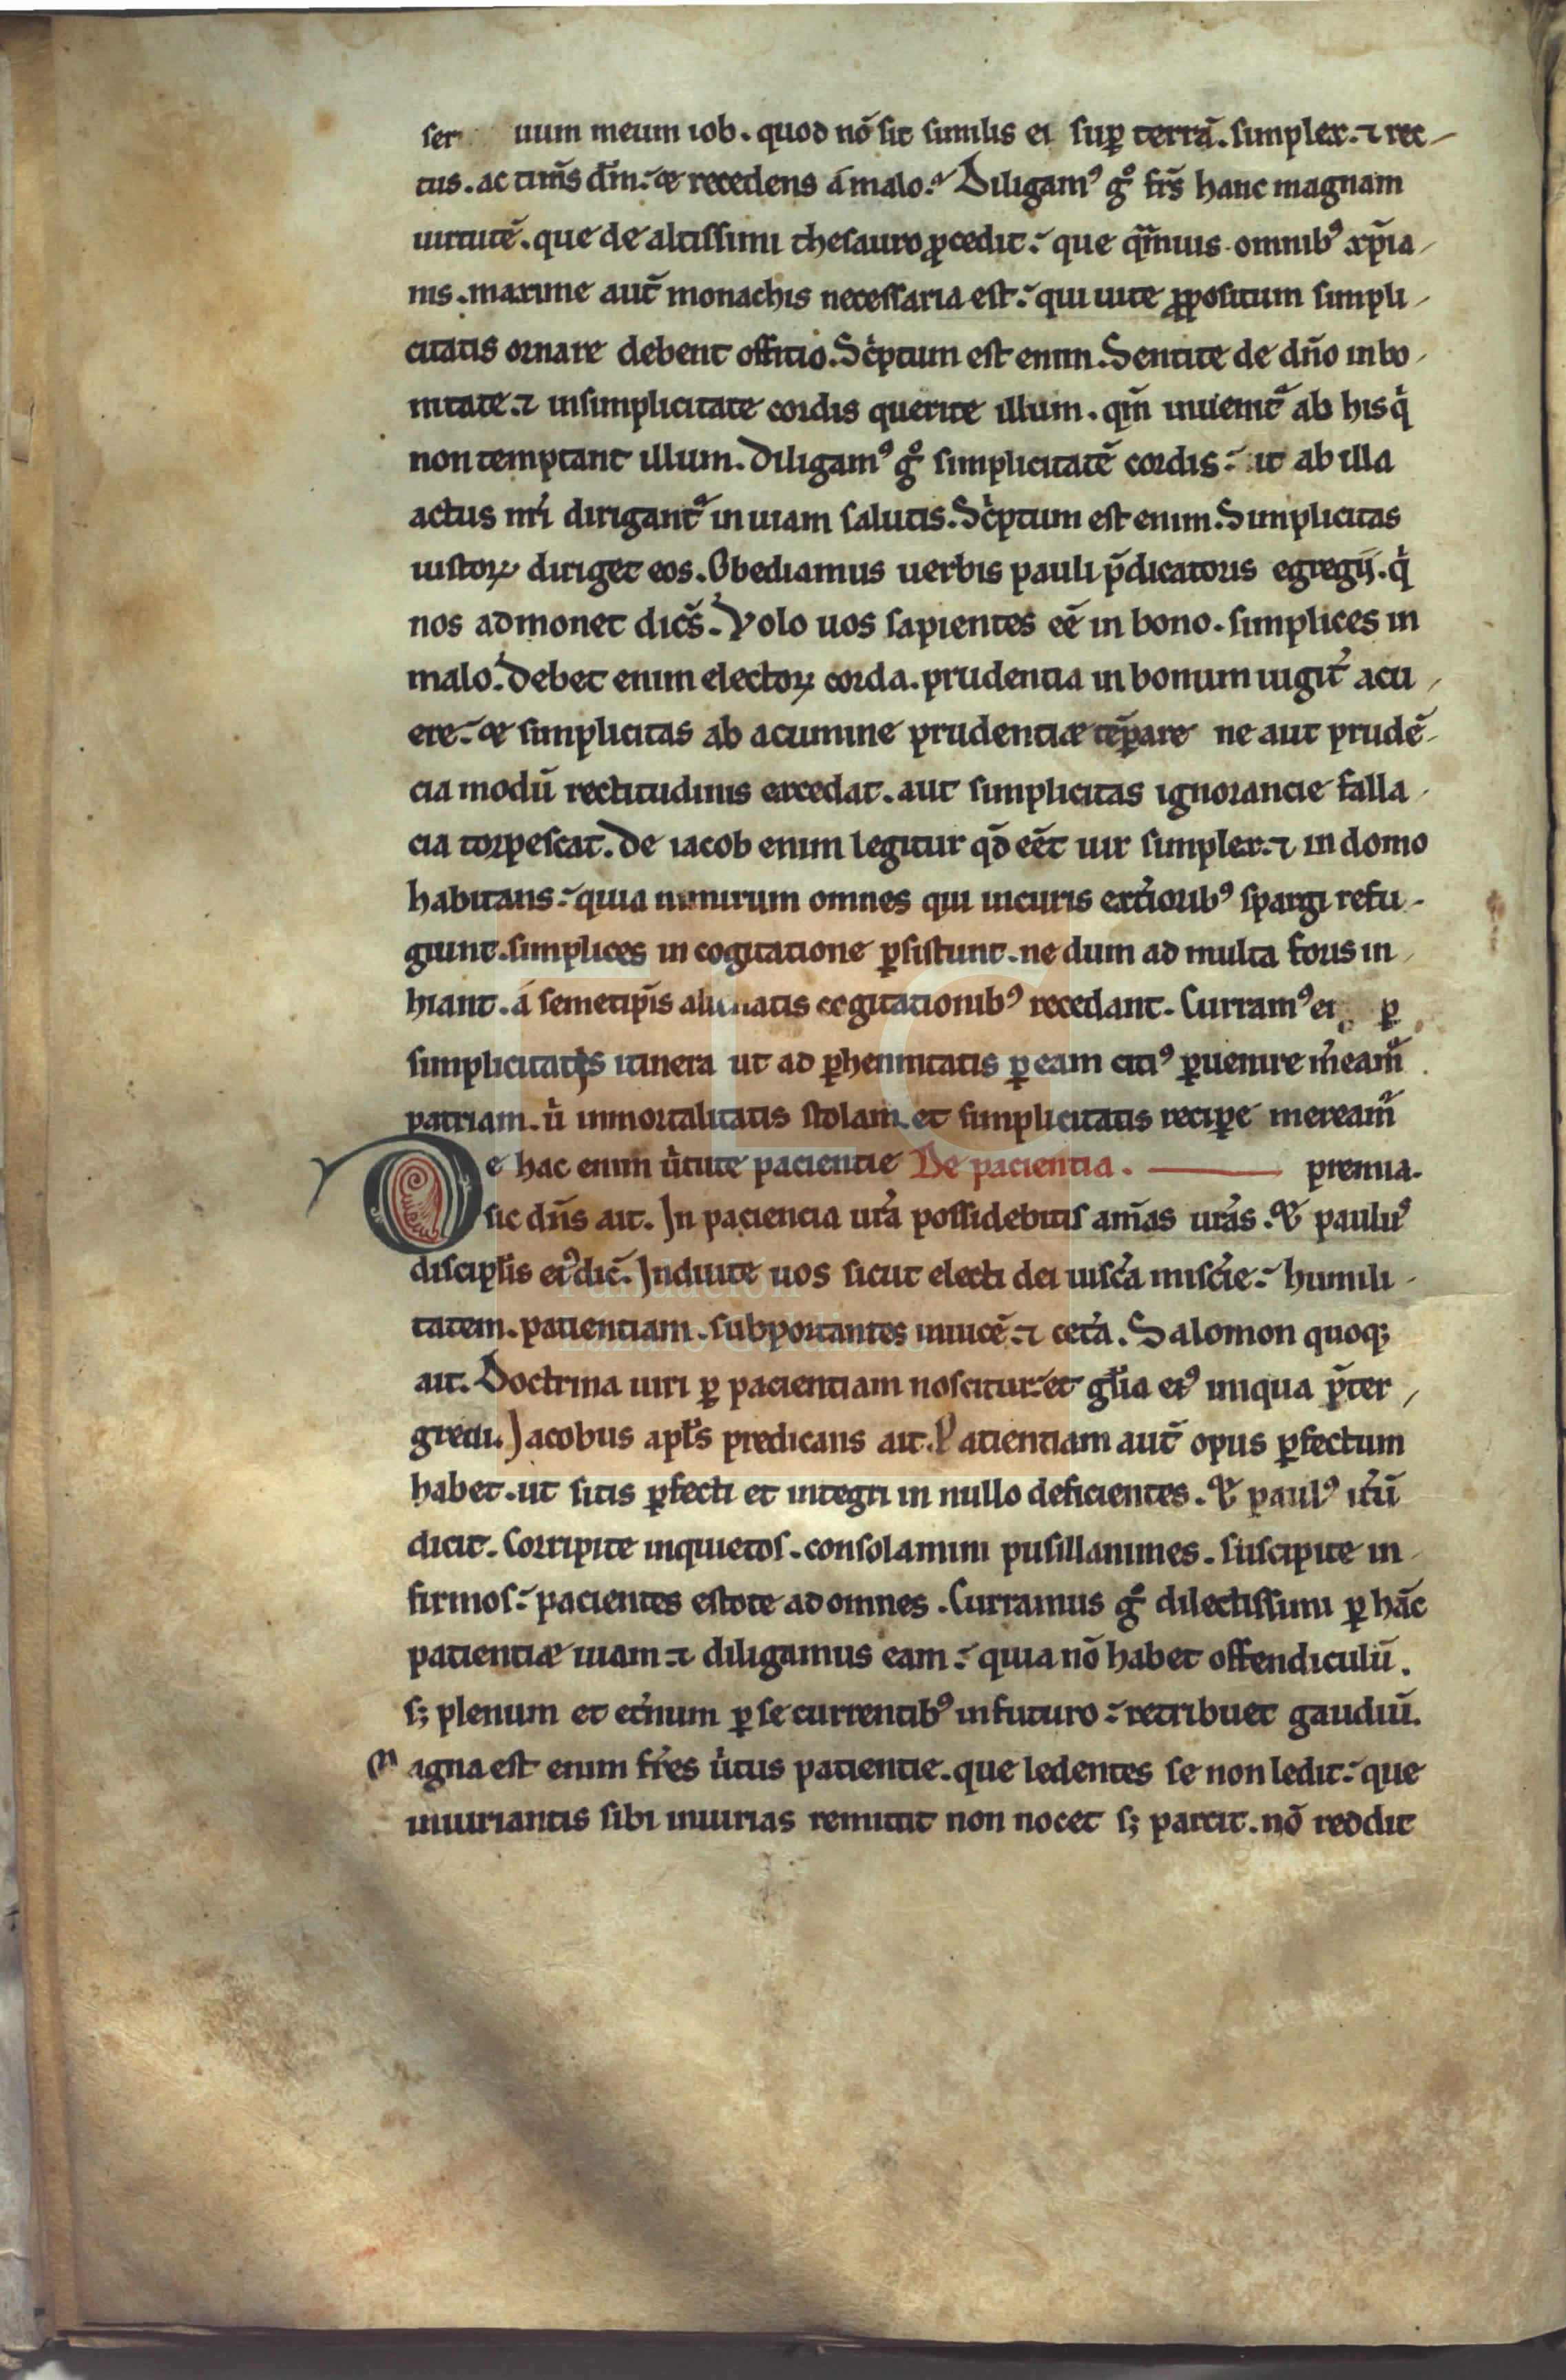 ser uum meum iob. quod nõ sit similis ei sup̲ terrã. simplex. ⁊ rec-
tus. ac tim̃s dm̃. & recedens a malo. Diligamꝰ gͦ fr̃s hanc magnam
uirtutẽ. que de altissimi thesauro ꝓcedit. que qm̃uis omnibꝰ xp̃ia-
nis. maxime aut̃ monachis necessaria est. qui uite ꝓpositum simpli-
citatis ornare debent offitio. Sc̍ptum est enim. Sentite de dño in bo-
nitate. ⁊ in simplicitate cordis querite illum. qm̃ inuenit᷑ ab his q̍
non temptant illum. Diligamꝰ gͦ simplicitatẽ cordis. ut ab illa
actus nr̃i dirigant᷑ in uiam salutis. Sc̍ptum est enim. Simplicitas
iustoꝝ diriget eos. Obediamus uerbis pauli p̃dicatoris egregij. q̍
nos admonet dicẽs. Volo uos sapientes eẽ in bono. simplices in
malo. Debet enim electoꝝ corda. prudentia in bonum iugit̾ acu-
ere. & simplicitas ab acumine prudentiæ tẽꝑare ne aut prudẽ-
cia modũ rectitudinis excedat. aut simplicitas ignorancie falla-
cia torpescat. De iacob enim legitur qd̃ eẽt uir simplex. ⁊ in domo
habitans. quia nimirum omnes qui in curis ext̾ioribꝰ spargi refu-
giunt. simplices in cogitatione ꝑsistunt. ne dum ad multa foris in-
hiant. a semetip̃is alienatis cogitationibꝰ recedant. Curramꝰ ꝑ
simplicitatis itinera ut ad ꝑhennitatis ꝑ eam citiꝰ ꝑuenire m̾eam᷑
patriam. u̍ inmortalitatis stolam. et simplicitatis reciꝑe meream᷑
De hac enim u̍tute pacientie De pacientia. premia.
sic dñs ait. In paciencia ur̃a possidebitis am̃as ur̃as. & paulꝰ
discipl̃is eiꝰ dic̃. Induite uos sicut electi dei uisc̾a misc̾ie. humili-
tatem. patientiam. subportantes inuicẽ. ⁊ cet̾a. Salomon quoqꝫ
ait. Doctrina uiri ꝑ pacientiam noscitur. et gl̃ia eiꝰ iniqua p̃ter-
gredi. Jacobus apl̃s predicans ait. Patientiam aut̃ opus ꝑfectum
habet. ut sitis ꝑfecti et integri in nullo deficientes. & paulꝰ it̾ũ
dicit. Corripite inquietos. consolamini pusillanimes. suscipite in-
firmos. pacientes estote ad omnes. Curramus gͦ dilectissimi ꝑ hãc
patientiæ uiam. ⁊ diligamus eam. quia nõ habet offendiculũ.
sꝫ plenum et et̾num ꝑ se currentibꝰ in futuro. retribuet gaudiũ.
Magna est enim fr̃es u̍tus patientie. que ledentes se non ledit. que
iniuriantis sibi iniurias remittit non nocet sꝫ parcit. nõ reddit
Fundación
Lázaro Galdiano